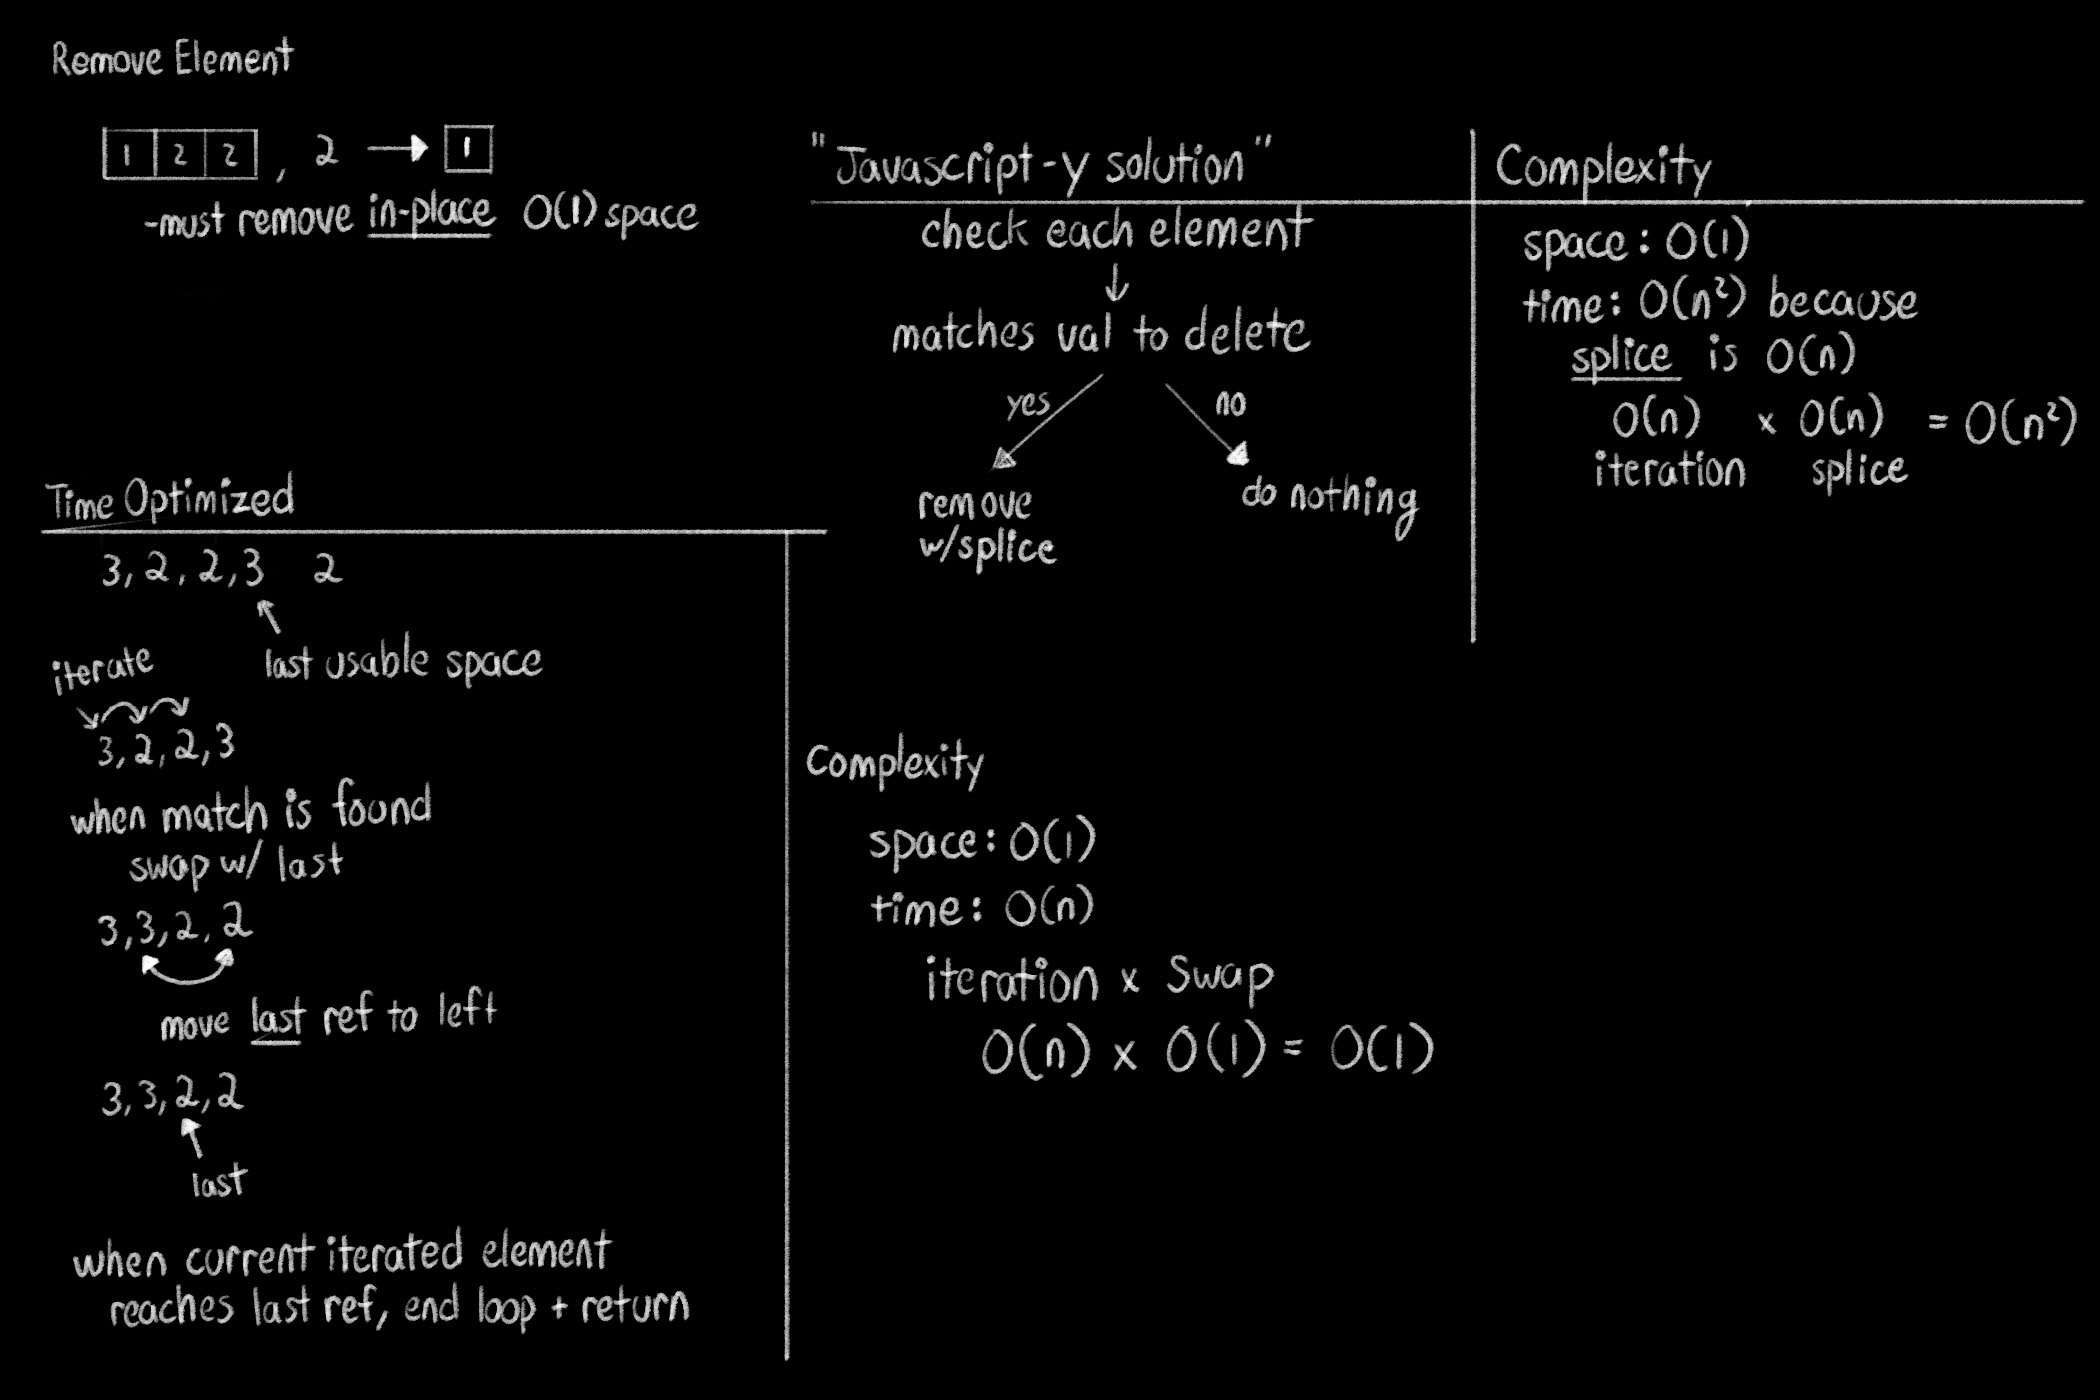 Remove Element
1 2 2 , 2 → 1
-must remove in-place O(1) space
"Javascript-y solution"
check each element
↓
matches val to delete
yes no
remove
w/splice
do nothing
Complexity
space: O(1)
time: O(n²) because
splice is O(n)
O(n) x O(n) = O(n²)
iteration splice
Time Optimized
3, 2, 2, 3 2
last usable space
iterate
3, 2, 2, 3
when match is found
swap w/ last
3, 3, 2, 2
move last ref to left
3, 3, 2, 2
last
when current iterated element
reaches last ref, end loop + return
Complexity
space: O(1)
time: O(n)
iteration x Swap
O(n) x O(1) = O(1)